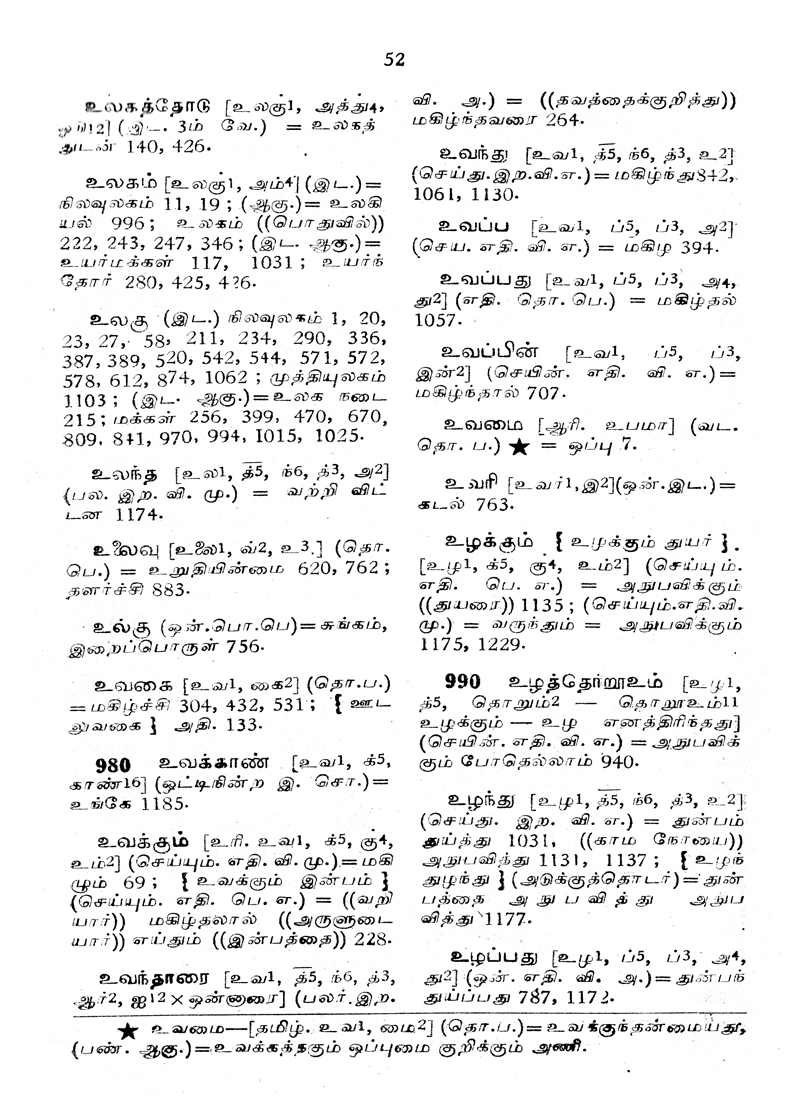 52
உலகத்தோடு [உலகு1, அத்து4,
ஓடு12] (இட. 3ம் வே.) = உலகத்
துடன் 140, 426.
உலகம் [உலகு1, அம்4] (இட.)=
நிலவுலகம் 11, 19 ; (ஆகு.)= உலகி
யல் 996; உலகம் ((பொதுவில்))
222, 243, 247, 346 ; (இட. ஆகு.)=
உயர்மக்கள் 117, 1031 ; உயர்ந்
தோர் 280, 425, 426.
உலகு (இட.) நிலவுலகம் 1, 20,
23, 27, 58, 211, 234, 290, 336,
387, 389, 520, 542, 544, 571, 572,
578, 612, 874, 1062 ; முத்தியுலகம்
1103 ; (இட. ஆகு.)=உலக நடை
215; மக்கள் 256, 399, 470, 670,
809, 841, 970, 994, 1015, 1025.
உலந்த [உல1, த்5, ந்6, த்3, அ2]
(பல. இற. வி. மு.) = வற்றி விட்
டன 1174.
உலைவு [உலை1, வ்2, உ3.] (தொ.
பெ.) = உறுதியின்மை 620, 762 ;
தளர்ச்சி 883.
உல்கு (ஒன்.பொ.பெ)=சுங்கம்,
இறைப்பொருள் 756.
உவகை [உவ1, கை2] (தொ.ப.)
=மகிழ்ச்சி 304, 432, 531 ; { ஊட
லுவகை } அதி. 133.
980 உவக்காண் [உவ1, க்5,
காண்16] (ஒட்டிநின்ற இ. சொ.)=
உங்கே 1185.
உவக்கும் [உரி. உவ1, க்5, கு4,
உம்2] (செய்யும். எதி. வி. மு.)=மகி
ழும் 69 ; { உவக்கும் இன்பம் }
(செய்யும். எதி. பெ. எ.) = ((வறி
யார்)) மகிழ்தலால் ((அருளுடை
யார்)) எய்தும் ((இன்பத்தை)) 228.
உவந்தாரை [உவ1, த்5, ந்6, த்3,
ஆர்2, ஐ12 × ஒன்னாரை] (பலர்.இற.
வி. அ.) = ((தவத்தைக்குறித்து))
மகிழ்ந்தவரை 264.
உவந்து [உவ1, த்5, ந்6, த்3, உ2]
(செய்து.இற.வி.எ.)=மகிழ்ந்து842,
1061, 1130.
உவப்ப [உவ1, ப்5, ப்3, அ2]
(செய. எதி. வி. எ.) = மகிழ 394.
உவப்பது [உவ1, ப்5, ப்3, அ4,
து2] (எதி. தொ. பெ.) = மகிழ்தல்
1057.
உவப்பின் [உவ1, ப்5, ப்3,
இன்2] (செயின். எதி. வி. எ.)=
மகிழ்ந்தால் 707.
உவமை [ஆரி. உபமா] (வட.
தொ. ப.) ★ = ஒப்பு 7.
உவரி [உவர்1,இ2](ஒன்.இட.)=
கடல் 763.
உழக்கும் { உழக்கும் துயர் }.
[உழ1, க்5, கு4, உம்2] (செய்யும்.
எதி. பெ. எ.) = அநுபவிக்கும்
((துயரை)) 1135 ; (செய்யும்.எதி.வி.
மு.) = வருந்தும் = அநுபவிக்கும்
1175, 1229.
990 உழத்தொறூஉம் [உழ1,
த்5, தொறும்2 — தொறூஉம்11
உழக்கும் — உழ எனத்திரிந்தது]
(செயின். எதி. வி. எ.) =அநுபவிக்
கும் போதெல்லாம் 940.
உழந்து [உழ1, த்5, ந்6, த்3, உ2]
(செய்து. இற. வி. எ.) = துன்பம்
துய்த்து 1031, ((காம நோயை))
அநுபவித்து 1131, 1137 ; { உழந்
துழந்து } (அடுக்குத்தொடர்)=துன்
பத்தை அநுபவித்து அநுப
வித்து 1177.
உழப்பது [உழ1, ப்5, ப்3, அ4,
து2] (ஒன். எதி. வி. அ.)=துன்பந்
துய்ப்பது 787, 1172.
★ உவமை—[தமிழ். உவ1, மை2] (தொ.ப.)=உவக்குந்தன்மையது,
(பண். ஆகு.)=உவக்கத்தகும் ஒப்புமை குறிக்கும் அணி.